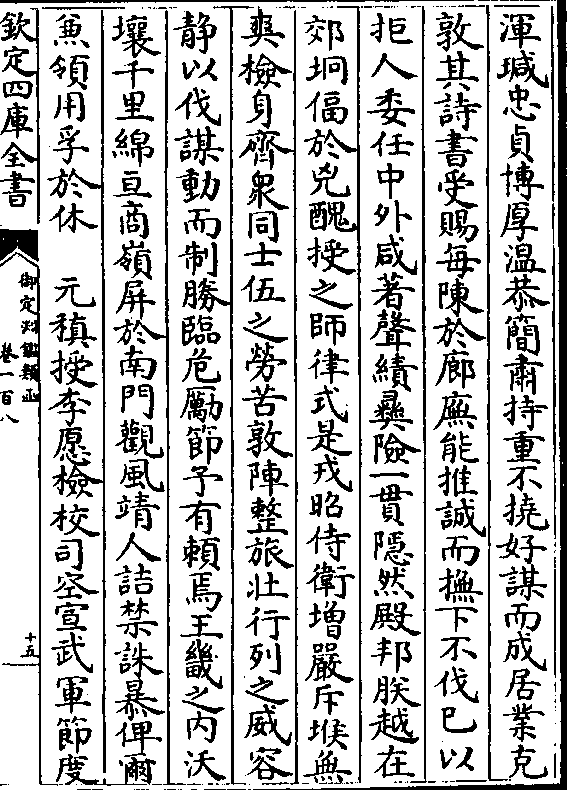 渾瑊忠貞博厚温恭簡肅持重不撓好謀而成居業克
敦其詩書受賜每陳於廊廡能推誠而撫下不伐已以
拒人委任中外咸著聲績彞險一貫隠然殿邦朕越在
郊坰偪於兇醜授之師律式是戎昭侍衛増嚴斥堠無
爽檢身齊衆同士伍之勞苦敦陣整旅壯行列之威容
静以伐謀動而制勝臨危勵節予有頼焉王畿之内沃
壤千里綿亘商嶺屏於南門觀風靖人詰禁誅暴俾爾
兼領用孚於休　元稹授李愿檢校司空宣武軍節度
欽定四庫全書
御定淵鑑類函
卷一百八
十五